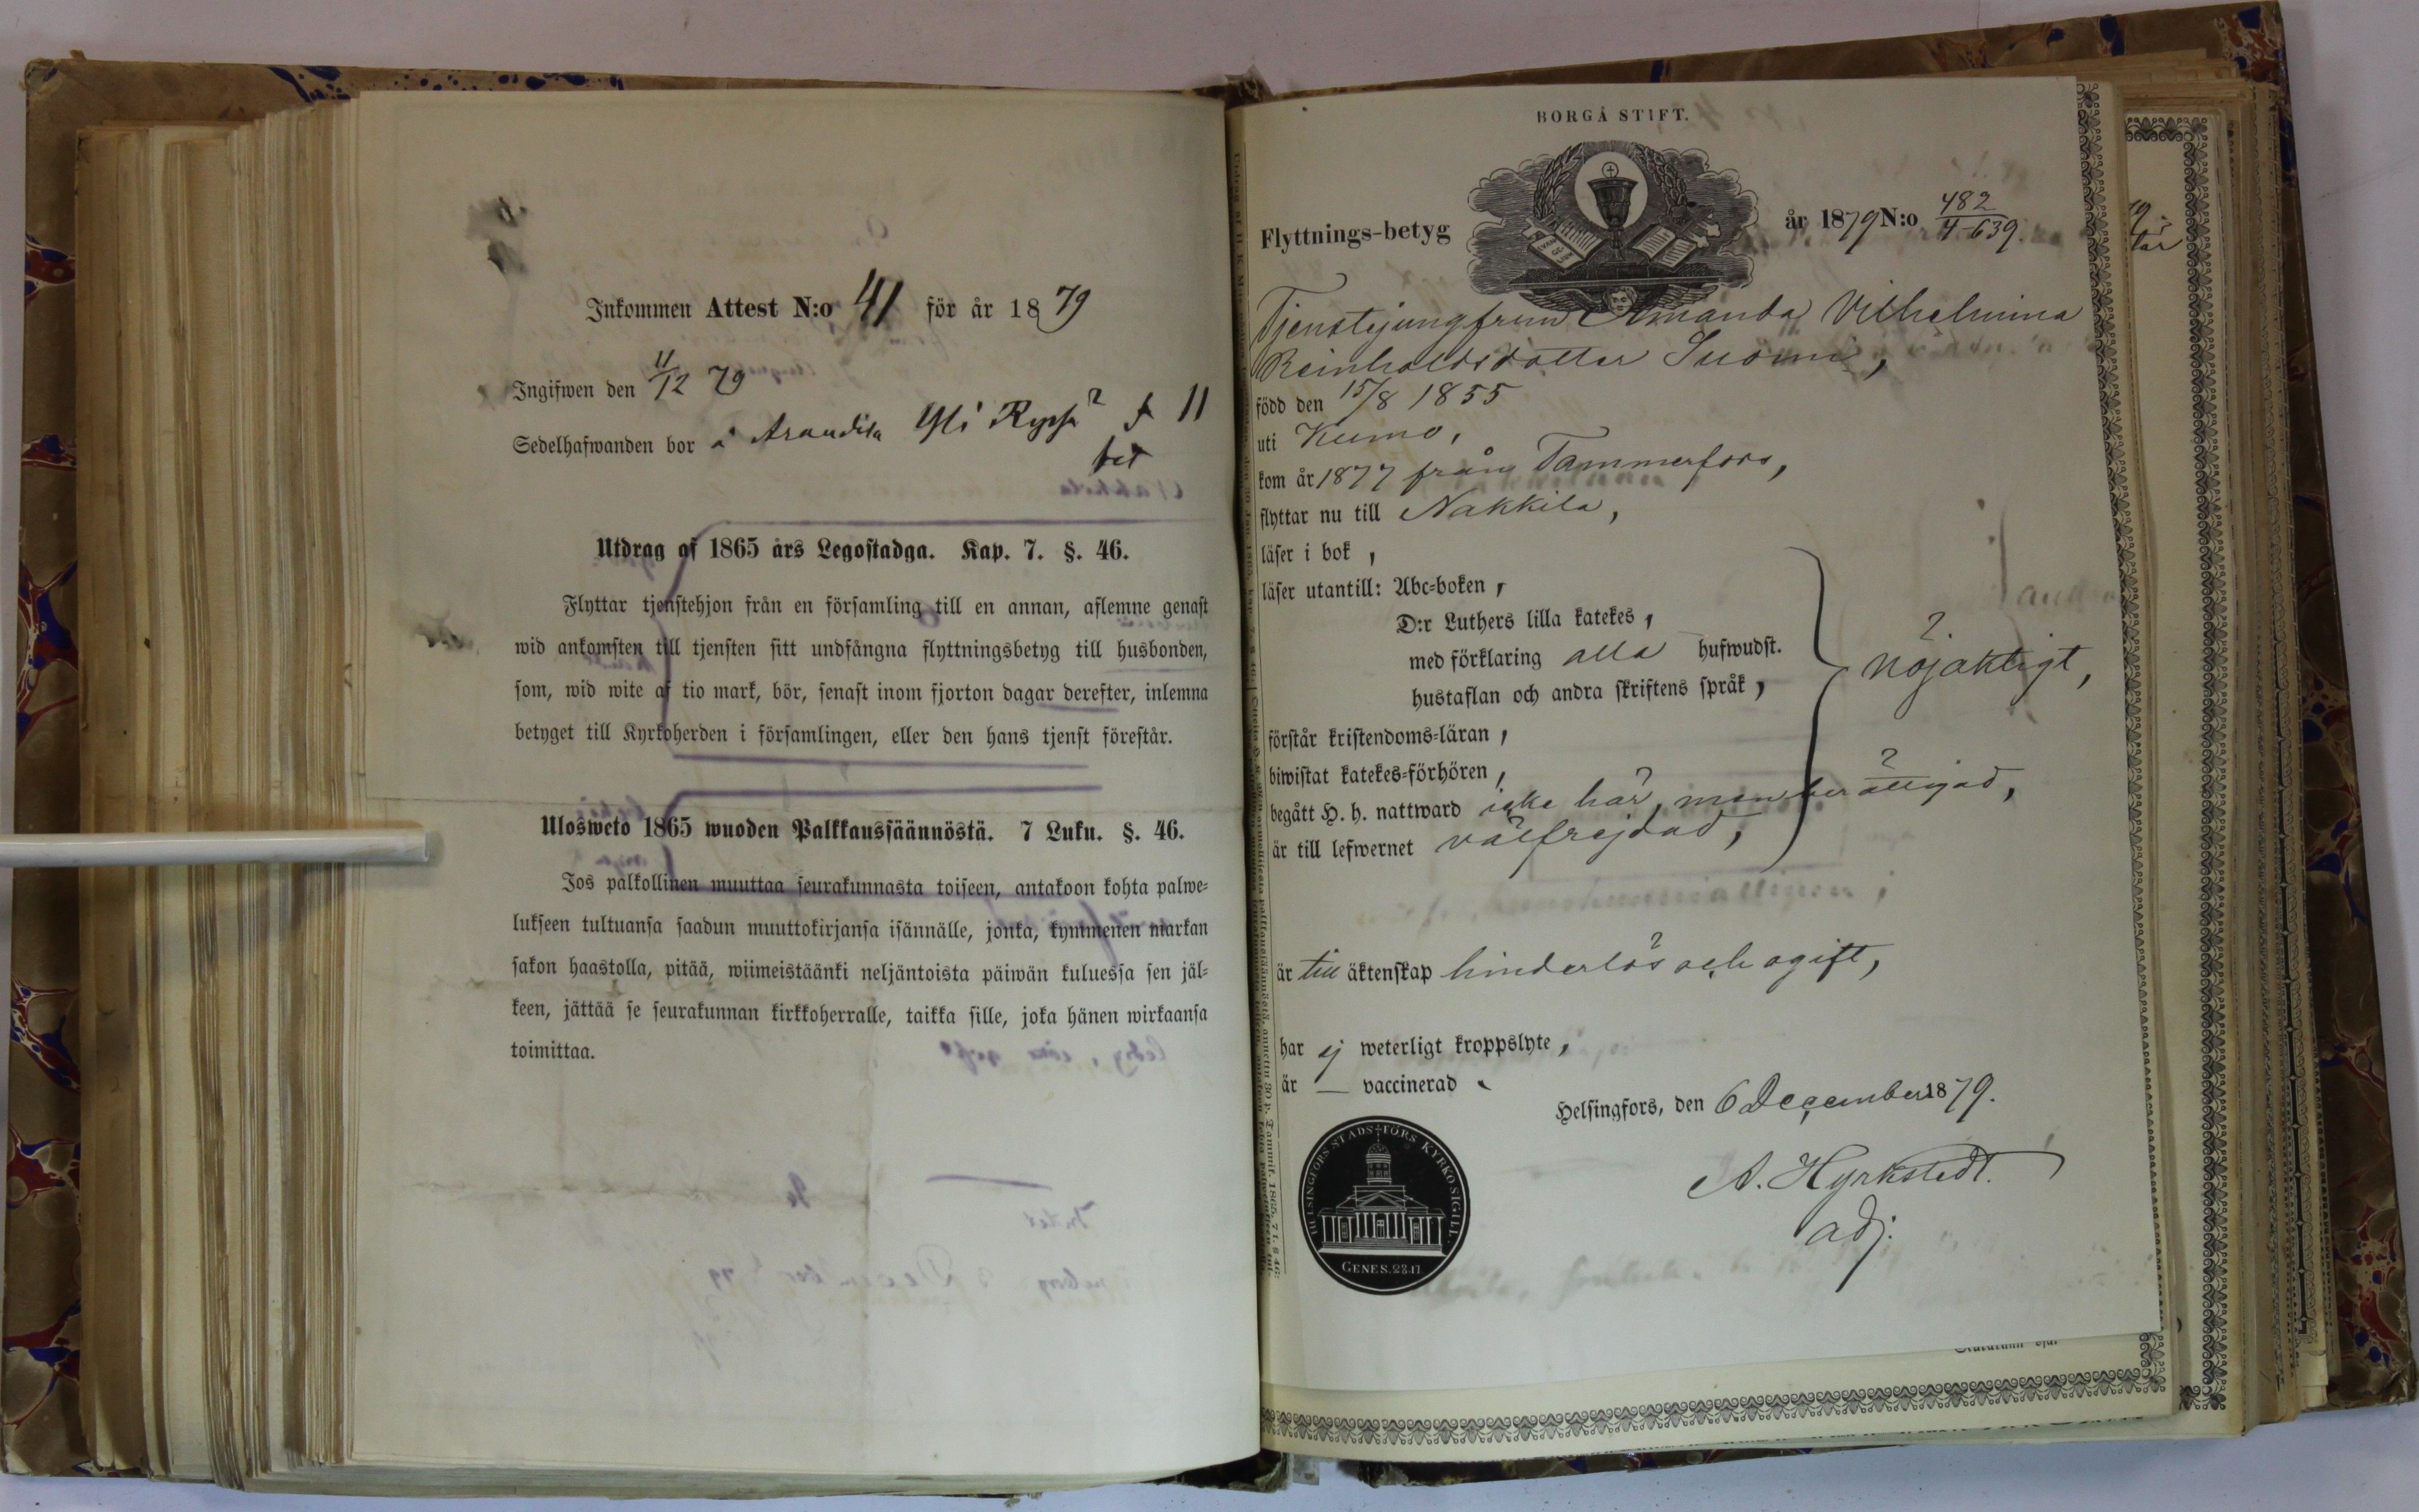 Inkommen Attest N:o 41 för år 1879
Ingifwen den 11/12 79
Sedelhafwanden bor å Arandila Yli 11
Utdrag af 1865 års Legostadga. Kap. 7. §. 46.
Flyttar tjenstehjon från en församling till en annan, aflemne genast
wid ankomsten till tjensten sitt undfångna flyttningsbetyg till husbonden,
som, wid wite af tio mark, bör, senast inom fjorton dagar derefter, inlemna
betyget till Kyrkoherden i församlingen, eller den hans tjenst förestår.
Ulosweto 1865 wuoden Palkkaussäännöstä. 7 Luku. §. 46.
Jos palkollinen muuttaa seurakunnasta toiseen, antakoon kohta palwe-
lukseen tultuansa saadun muuttokirjansa isännälle, jonka, kymmenen markan
sakon haastolla, pitää, wiimeistäänki neljäntoista päiwän kuluessa sen jäl-
keen, jättää se seurakunnan kirkkoherralle, taikka sille, joka hänen wirkaansa
toimittaa.
BORGÅ STIFT.
EVANGELIUM
Flyttnings-betyg år 1879 N:o 482/4639.
Tjenstejungfrun Amanda Vilhelmina
Reinholdsdotter Suomi,
född den 15/8 1855
uti Kumo,
kom år 1877 från Tammerfors,
flyttar nu till Nakkila,
läser i bok,
läser utantill: Abc-boken,
D:r Luthers lilla katekes,
med förklaring alla hufwudst.
hustaflan och andra skriftens språk,
nöjaktigt,
förstår kristendoms-läran,
biwistat katekes-förhören,
begått H. h. nattward icke här, men berättigad,
är till lefwernet välfrejdad,
är till äktenskap hinderlös och ogift,
har ej weterligt kroppslyte,
är — vaccinerad
Helsingfors, den 6 December 1879.
A. Hyrkstedt.
adj.
HELSINGFORS STADS FÖRS KYRKO SIGILL.
GENES. 28.17.